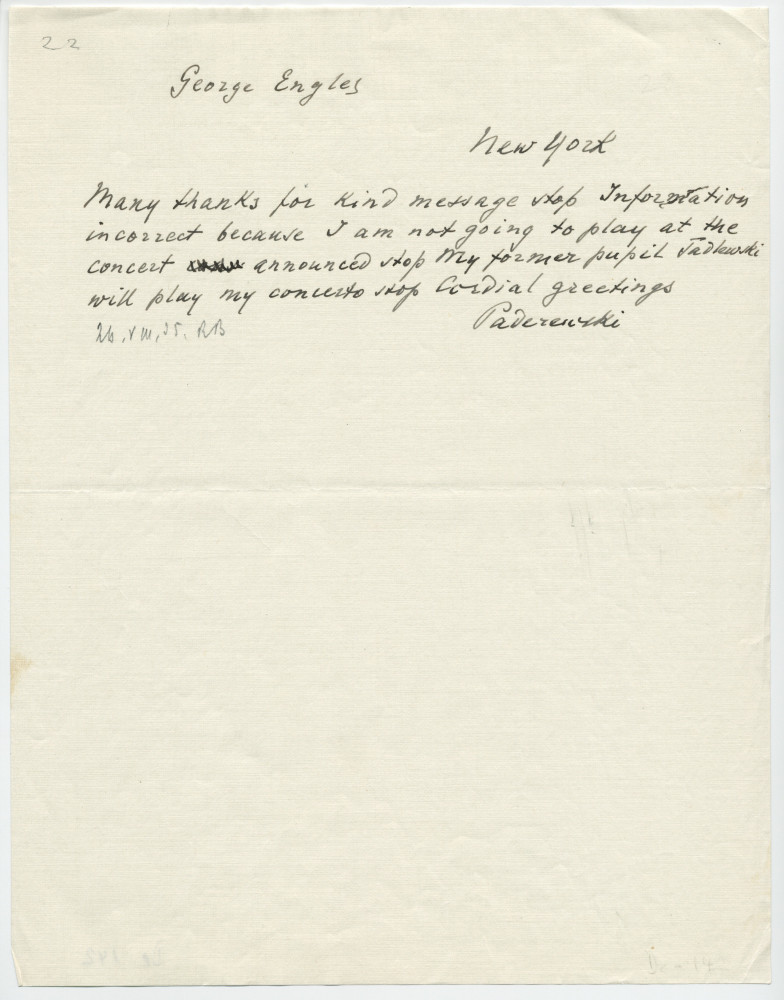 22
George Engles
New York
Many thanks for kind message stop Information
incorrect because I am not going to play at the
concert announced stop My former pupil Tadlewski
will play my concerto stop Cordial greetings
Paderewski
26. VIII. 35. RB